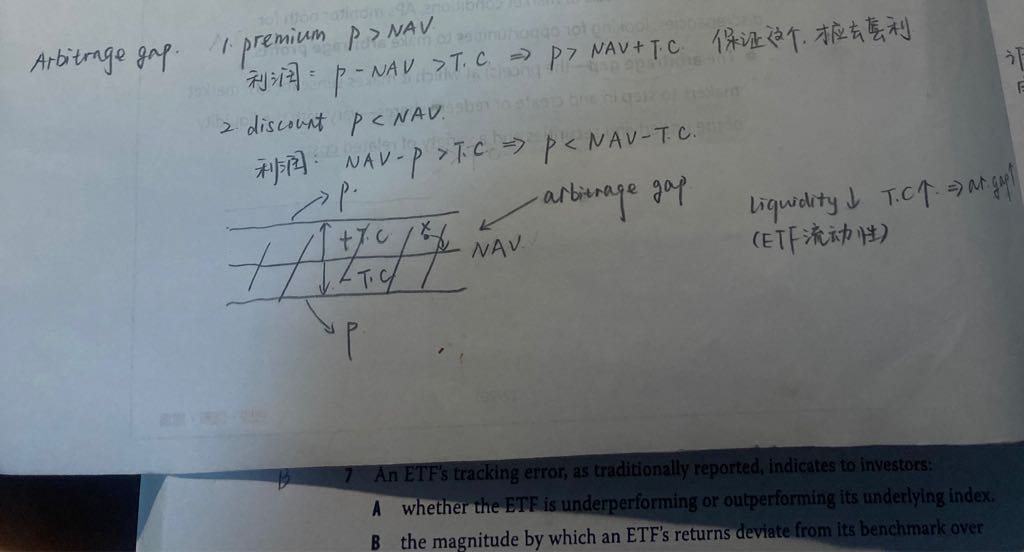 Arbitrage gap. 1. premium P > NAV.
利润: P - NAV > T.C ⇒ P > NAV + T.C. 保证这个, 才应去套利
2. discount P < NAV.
利润: NAV - P > T.C ⇒ P < NAV - T.C.
P.
arbitrage gap
liquidity ↓ T.C ↑ ⇒ ar. gap ↑
(ETF流动性)
+ T.C
NAV.
- T.C
P.
B 7 An ETF's tracking error, as traditionally reported, indicates to investors:
A whether the ETF is underperforming or outperforming its underlying index.
B the magnitude by which an ETF's returns deviate from its benchmark over